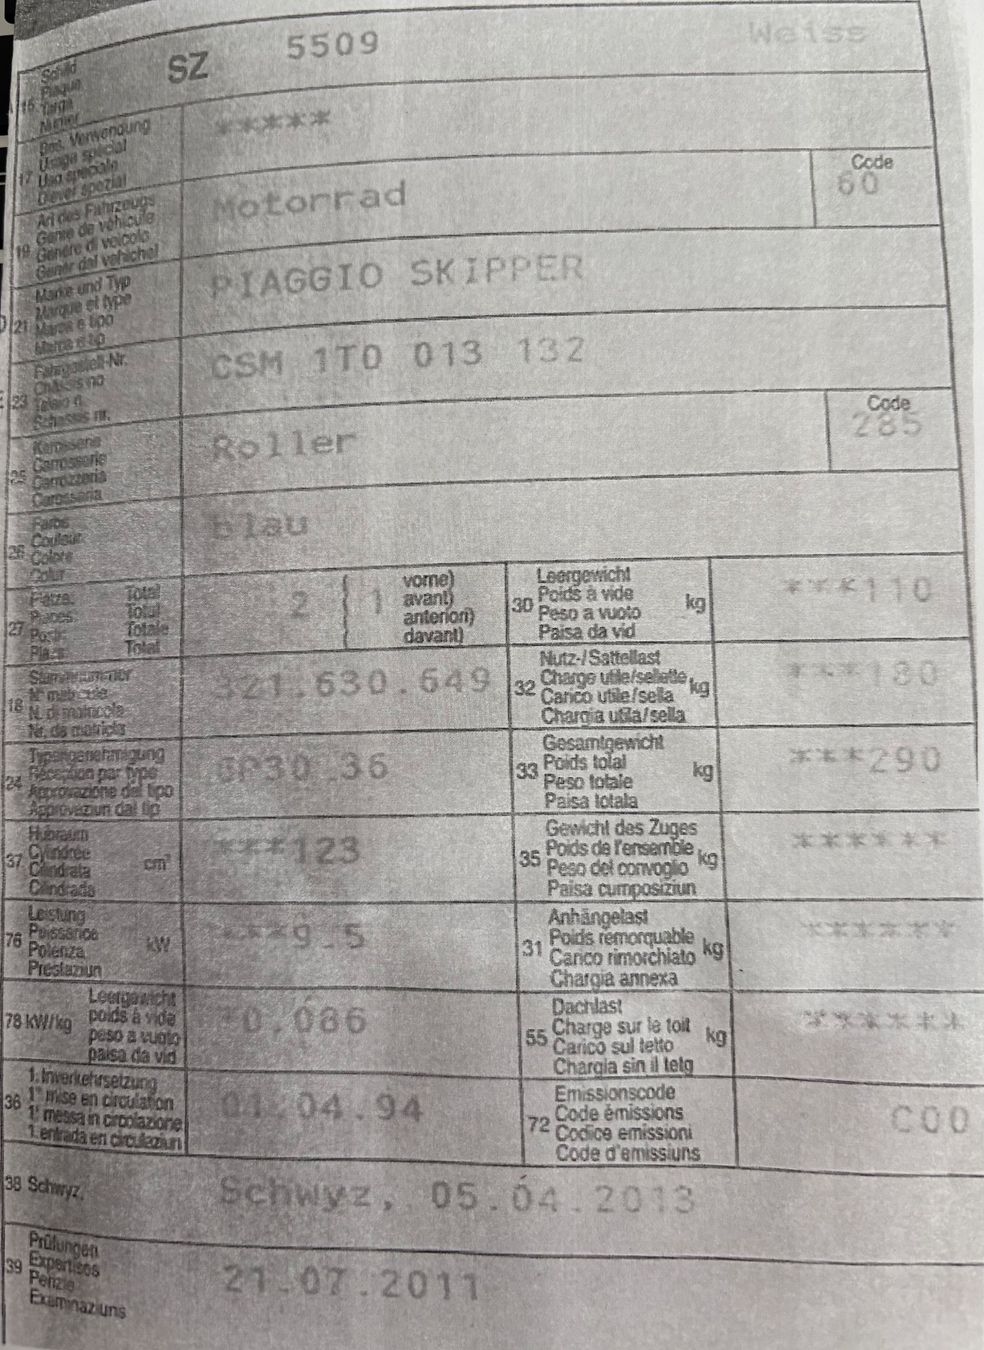 15 Schild
Plaque
Targa
Numer
SZ 5509 Weiss
17 Bes. Verwendung
Usage spécial
Uso speciale
Diever spezial
*****
19 Art des Fahrzeugs
Genre de véhicule
Genere di veicolo
Gener dal vehichel
Motorrad
Code
60
21 Marke und Typ
Marque et type
Marca e tipo
Marca e tip
PIAGGIO SKIPPER
23 Fahrgestell-Nr.
Châssis no
Telaio n.
Schassis nr.
CSM 1T0 013 132
25 Karosserie
Carrosserie
Carrozzeria
Carosseria
Roller
Code
285
26 Farbe
Couleur
Colore
Colur
blau
27 Plätze: Total
Places: Total
Posti: Totale
Plazs: Total
2 ( 1 vorne)
( avant)
( anteriori)
( davant)
30 Leergewicht
Poids à vide
Peso a vuoto
Paisa da vid
kg
***110
18 Stammnummer
N° matricule
N. di matricola
Nr. da matricla
321.630.649
32 Nutz-/Sattellast
Charge utile/sellette
Carico utile/sella
Chargia utila/sella
kg
***180
24 Typengenehmigung
Réception par type
Approvazione del tipo
Approvaziun dal tip
6P30 36
33 Gesamtgewicht
Poids total
Peso totale
Paisa totala
kg
***290
37 Hubraum
Cylindrée
Cilindrata
Cilindrada
cm³
***123
35 Gewicht des Zuges
Poids de l'ensemble
Peso del convoglio
Paisa cumposiziun
kg
******
76 Leistung
Puissance
Potenza
Prestaziun
kW
***9.5
31 Anhängelast
Poids remorquable
Carico rimorchiato
Chargia annexa
kg
******
78 kW/kg
Leergewicht
poids à vide
peso a vuoto
paisa da vid
*0.086
55 Dachlast
Charge sur le toit
Carico sul tetto
Chargia sin il tetg
kg
******
36 1. Inverkehrsetzung
1re mise en circulation
1a messa in circolazione
1. entrada en circulaziun
01.04.94
72 Emissionscode
Code émissions
Codice emissioni
Code d'emissiuns
C00
38 Schwyz,
Schwyz, 05.04.2013
39 Prüfungen
Expertises
Perizie
Examinaziuns
21.07.2011